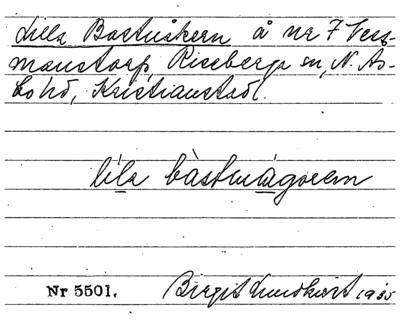 Lilla Bastuåkern å nr 7 Vess-
manstorp, Riseberga sn, N. Ås-
bo hd, Kristianst. l.
líla bàstuágǝren
Nr 5501. Birgit Lundkvist 1935